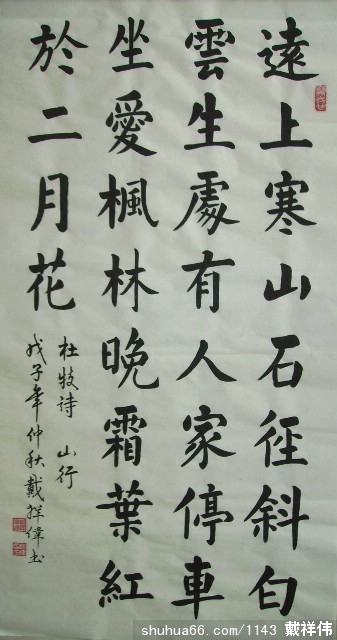 遠上寒山石徑斜白
雲生處有人家停車
坐愛楓林晚霜葉紅
於二月花
杜牧詩 山行
戊子年仲秋戴祥偉书
shuhua66.com/1143 戴祥伟